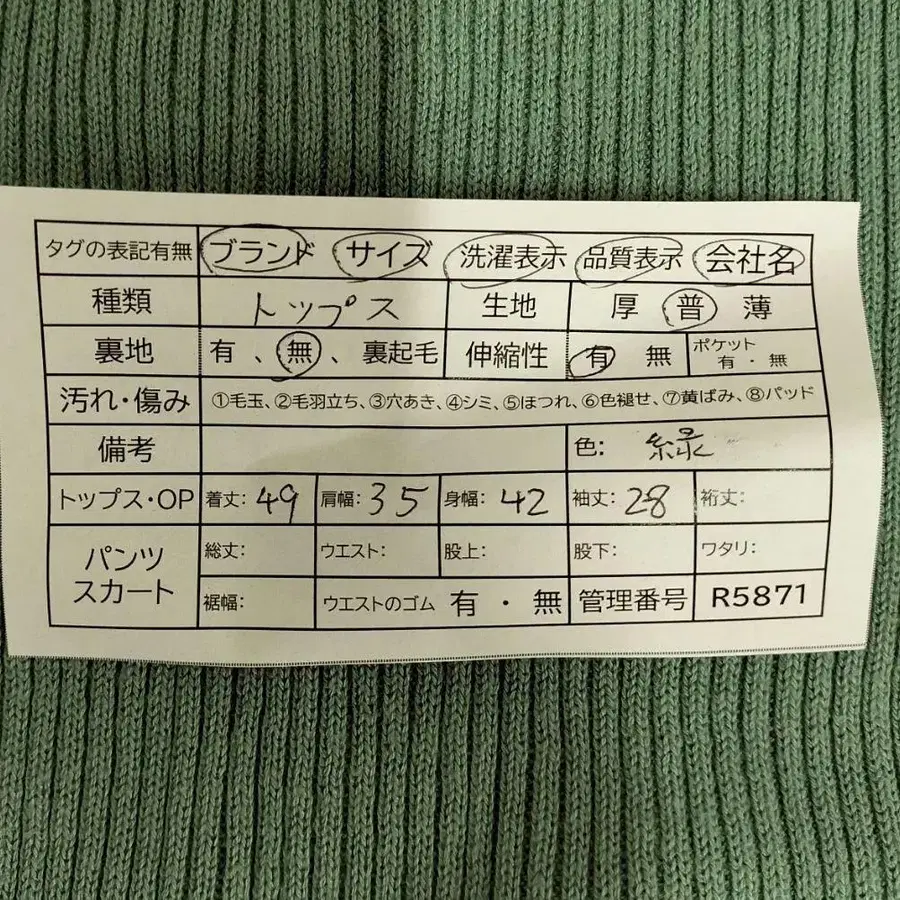 タグの表記有無 ブランド サイズ 洗濯表示 品質表示 会社名
種類 トップス 生地 厚 普 薄
裏地 有 、無 、裏起毛 伸縮性 有 無 ポケット 有 ・ 無
汚れ・傷み ①毛玉、②毛羽立ち、③穴あき、④シミ、⑤ほつれ、⑥色褪せ、⑦黄ばみ、⑧パッド
備考 色: 緑
トップス・OP 着丈: 49 肩幅: 35 身幅: 42 袖丈: 28 裄丈:
パンツ スカート 総丈: ウエスト: 股上: 股下: ワタリ:
裾幅: ウエストのゴム 有 ・ 無 管理番号 R5871